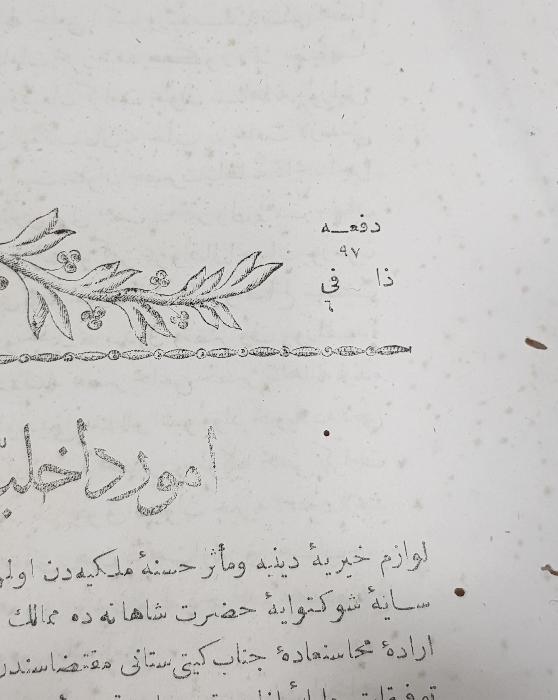 دفعـه
٩٧
ذا فى
٦
امور داخليه
لوازم خيريهٔ دينيه ومأثر حسنهٔ ملكيه‌دن اولم
سايهٔ شوكتوايهٔ حضرت شاهانه ده ممالك
ارادهٔ محاسنعادهٔ جناب كيتى ستانى مقتضاسندر